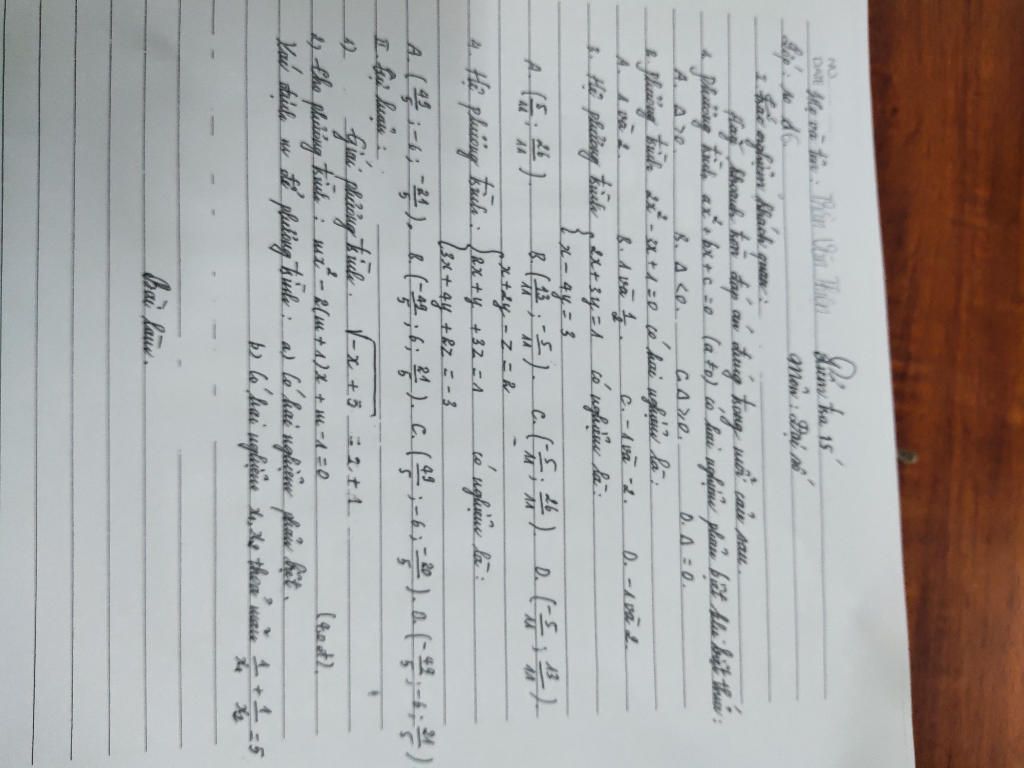 Họ và tên: Trần Văn Thân
Kiểm tra 15'
Lớp: 10 A6 Môn: Đại số
I. Trắc nghiệm khách quan:
Hãy khoanh tròn đáp án đúng trong mỗi câu sau.
1. phương trình ax² + bx + c = 0 (a≠0) có hai nghiệm phân biệt khi biệt thức:
A. Δ ≥ 0. B. Δ < 0. C. Δ > 0. D. Δ = 0.
2. phương trình 2x² - 3x + 1 = 0 có hai nghiệm là:
A. 1 và 2. B. 1 và 1/2. C. -1 và -2. D. -1 và 2.
3. Hệ phương trình { 2x + 3y = 1 có nghiệm là:
{ x - 4y = 3
A. (5/11; 26/11). B. (13/11; -5/11). C. (-5/11; 26/11). D. (-5/11; 13/11)
{ x + 2y - z = 2
4. Hệ phương trình: { 2x + y + 3z = 1 có nghiệm là:
{ 3x + 4y + 2z = -3
A. (49/5; -6; -21/5). B. (-49/5; 6; 21/5). C. (49/5; -6; -20/5). D. (-49/5; -6; 21/5)
II. Tự luận:
1) Giải phương trình. √(-x + 5) = 2 + 1
2) Cho phương trình: mx² - 2(m+1)x + m - 1 = 0
Xác định m để phương trình: a) Có hai nghiệm phân biệt.
b) Có hai nghiệm x₁, x₂ thoả mãn 1/x₁ + 1/x₂ = 5
Bài làm.